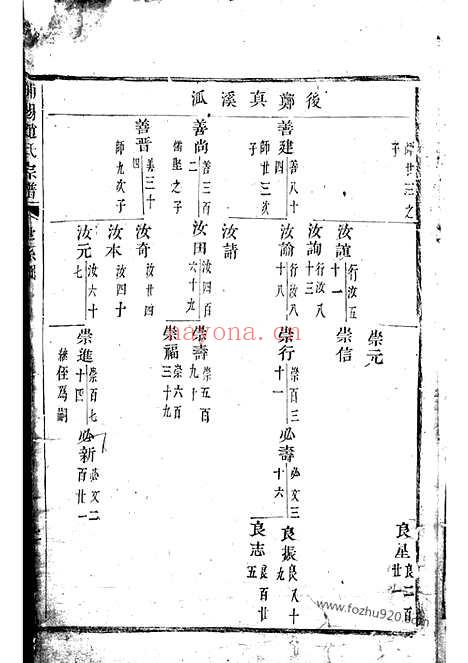 後鄭真溪泒
師廿三之
子
善建善八十
四
師廿三次
子
善尚善三百
二
儒聖之子
善晋善三十
四
師九次子
汝諠行汝五
十一
汝詢行汝八
十三
汝諭行汝八
十八
汝請
汝田汝四百
六十九
汝奇汝廿四
汝本汝四十
汝元汝六十
七
崇元
崇信
崇行崇百三
十一
崇壽崇五百
九十
崇福崇六百
三十九
崇進崇百七
十四
繼侄為嗣
必壽必文三
十六
必新必文二
百廿一
良星良二百
廿一
良振良八十
九
良志良百廿
五
趙氏宗譜
世系圖
nayona.cn
www.fozhu920.com